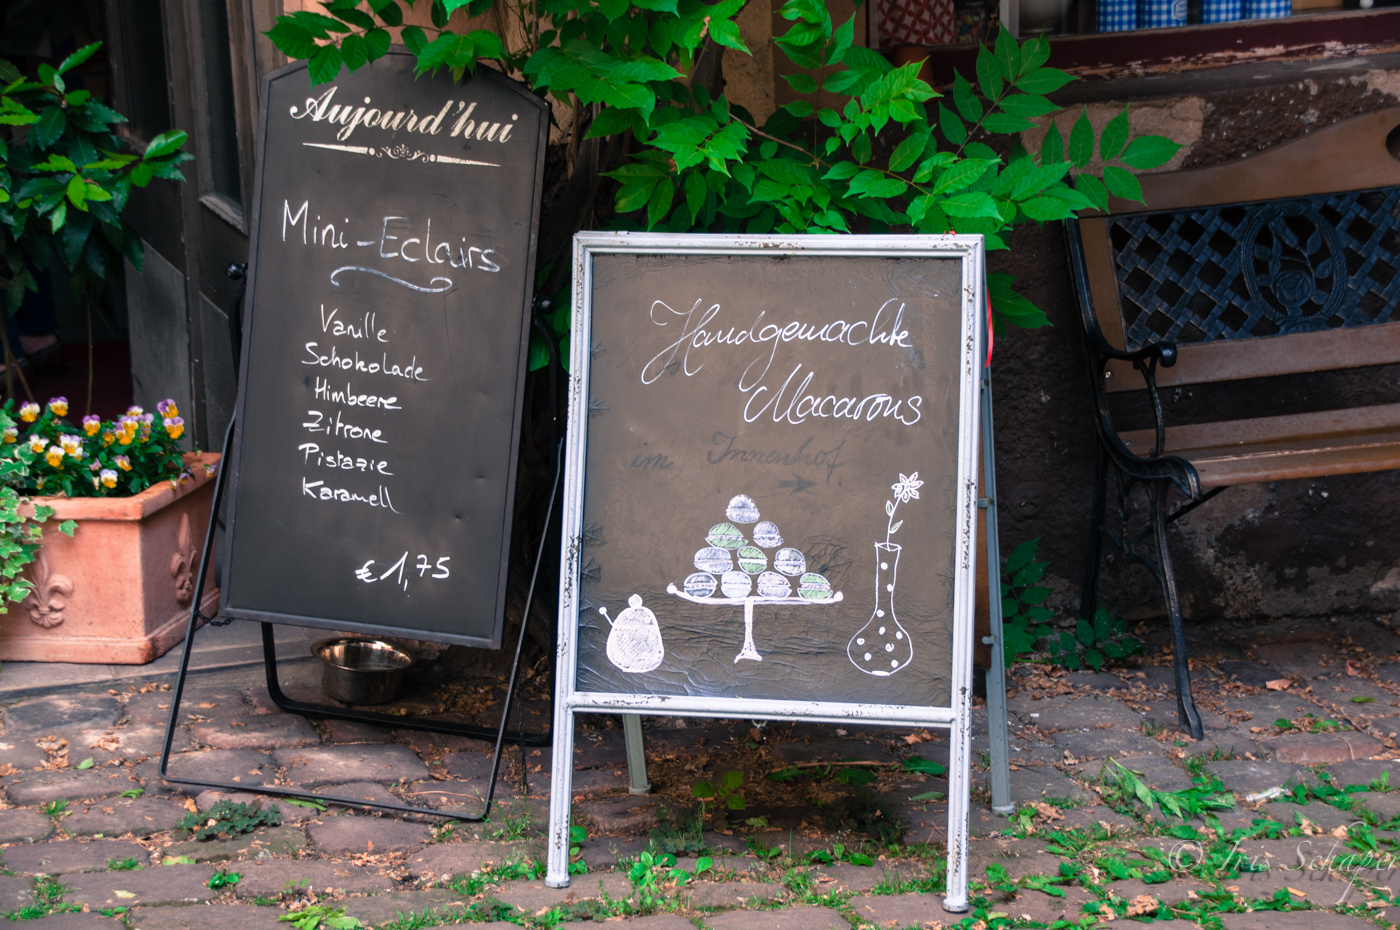 Aujourd'hui
Mini-Eclairs
Vanille
Schokolade
Himbeere
Zitrone
Pistazie
Karamell
€ 1,75
Handgemachte
Macarons
im Innenhof
→
© Iris Schape